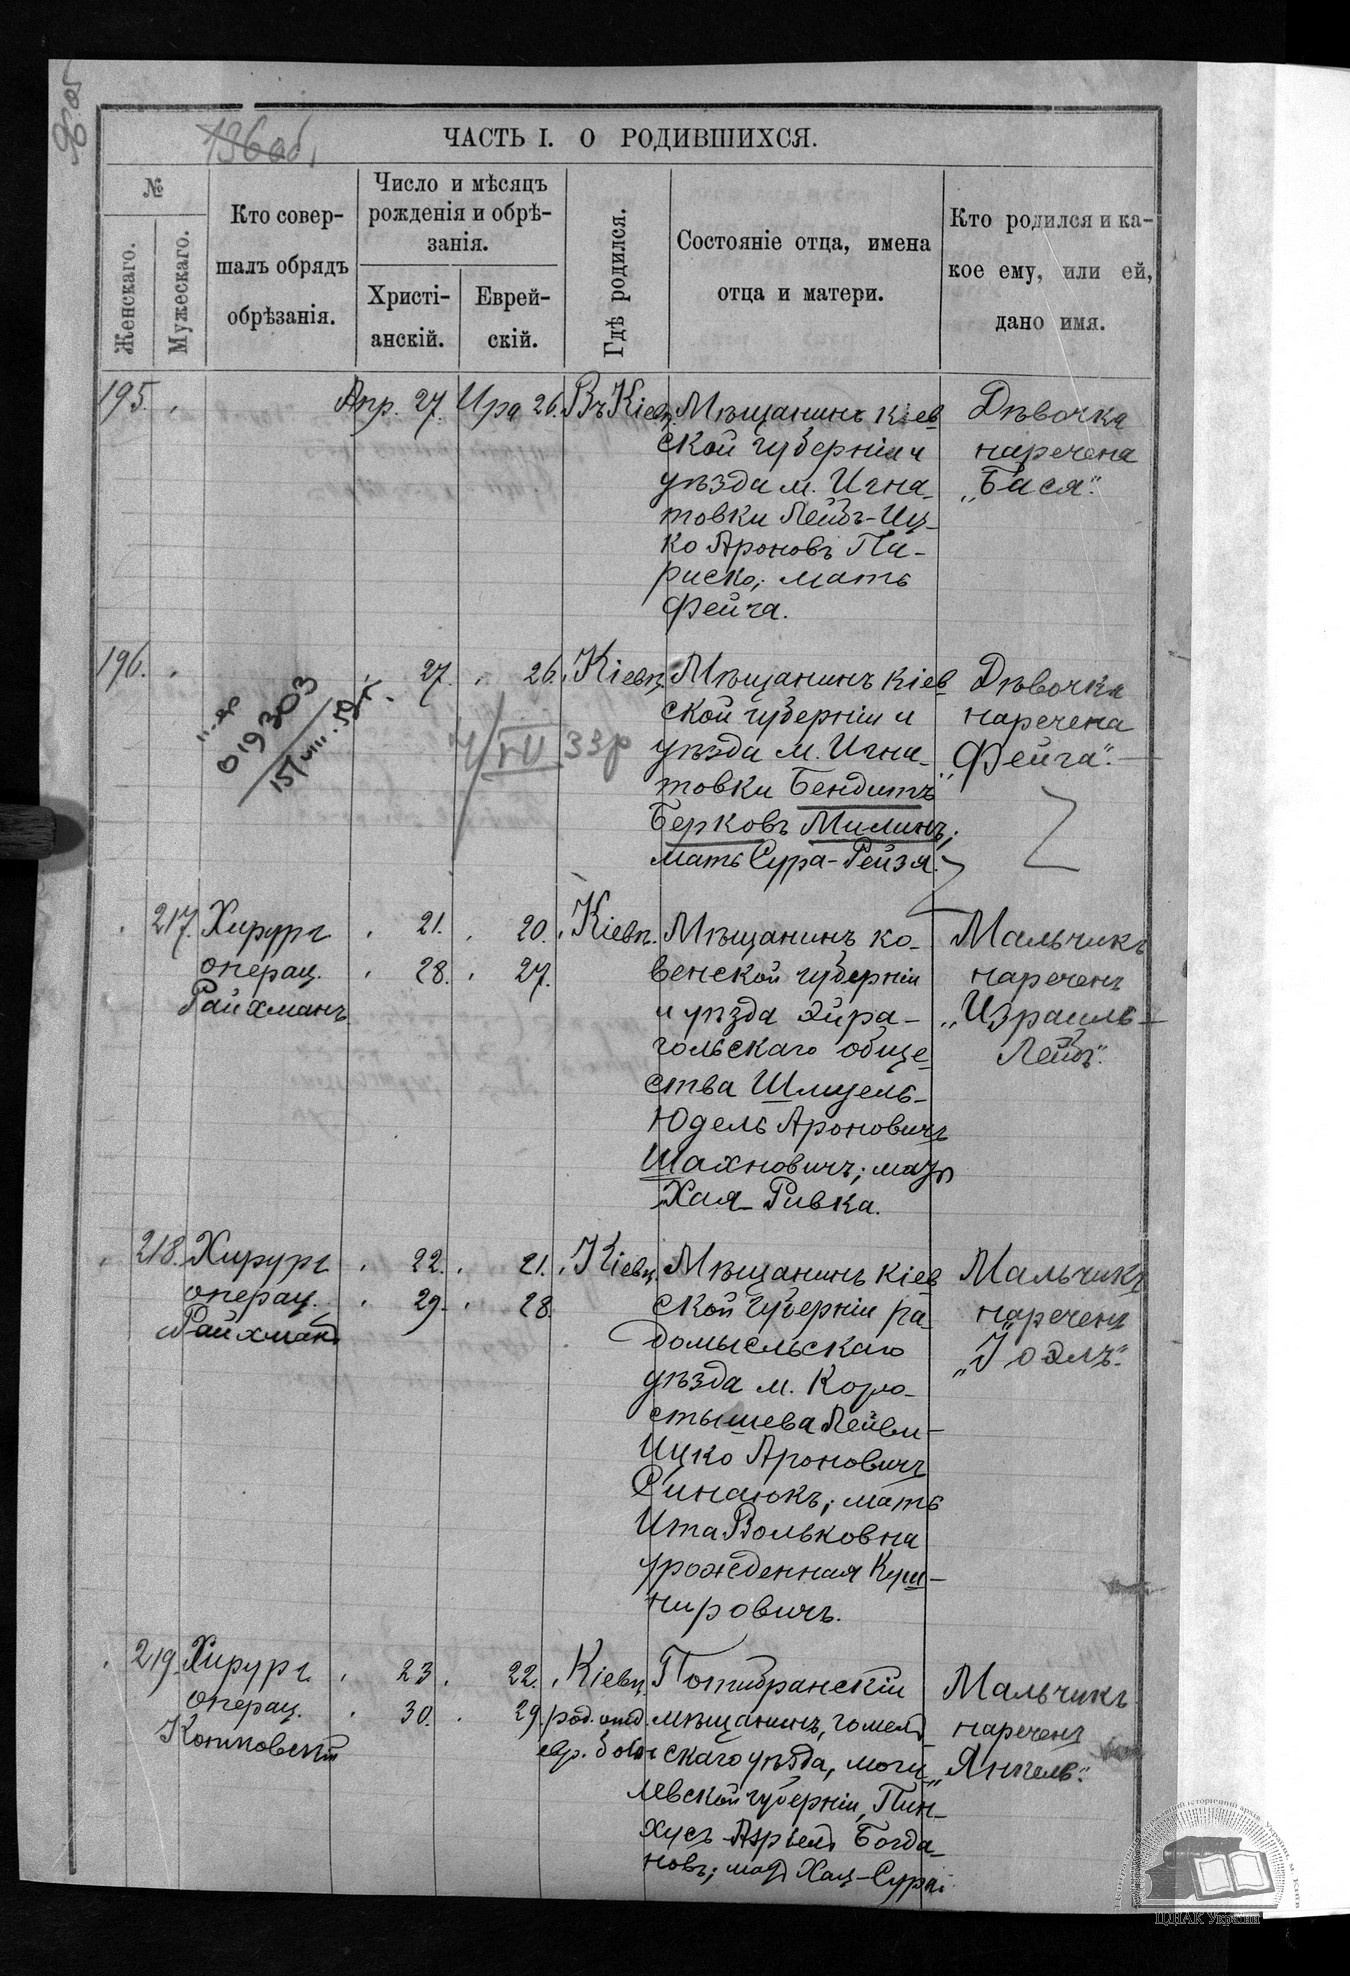 136об.
ЧАСТЬ I. О РОДИВШИХСЯ.
№
Женскаго.
Мужескаго.
Кто совер-
шалъ обрядъ
обрѣзанія.
Число и мѣсяцъ
рожденія и обрѣ-
занія.
Христі-
анскій.
Еврей-
скій.
Гдѣ родился.
Состояніе отца, имена
отца и матери.
Кто родился и ка-
кое ему, или ей,
дано имя.
195.
Апр. 27.
Ира 26.
Въ Кіевѣ
Мѣщанинъ Кіев
ской губерніи и
уѣзда м. Игна-
товки Лейбъ-Иц-
ко Ароновъ Па-
риско; мать
Фейга.
Дѣвочка
наречена
„Бася“.
196.
27.
26.
Кіевѣ
Мѣщанинъ Кіев
ской губерніи и
уѣзда м. Игна-
товки Бендитъ
Берковъ Милинъ;
мать Сура-Рейзя.
Дѣвочка
наречена
„Фейга“.
II-ЯР
019303
15/VIII.59г.
4/VII 33р
217.
Хирургъ
операц.
Райхманъ
21.
28.
20.
27.
Кіевѣ.
Мѣщанинъ ко-
венской губерніи
и уѣзда Эйра-
гольскаго обще-
ства Шмуель-
Юдель Ароновичъ
Шахновичъ; мать
Хая-Ривка.
Мальчикъ
нареченъ
„Израиль-
Лейбъ“.
218.
Хирургъ
операц.
Райхманъ
22.
29.
21.
28.
Кіевѣ
Мѣщанинъ Кіев
ской губерніи ра-
домысльскаго
уѣзда м. Коро-
стышева Лейви-
Ицко Ароновичъ
Синаюкъ; мать
Ита Вольковна
урожденная Куш-
нировичъ.
Мальчикъ
нареченъ
„Іоэлъ“.
219.
Хирургъ
операц.
23
30.
22.
29.
Кіевѣ
род. отд.
евр. больн
мѣщанинъ, гомель
скаго уѣзда, моги-
левской губерніи, Пин-
хусъ Богда-
новъ; мать
Мальчикъ
нареченъ
„Янкель“.
ЦДІАК України